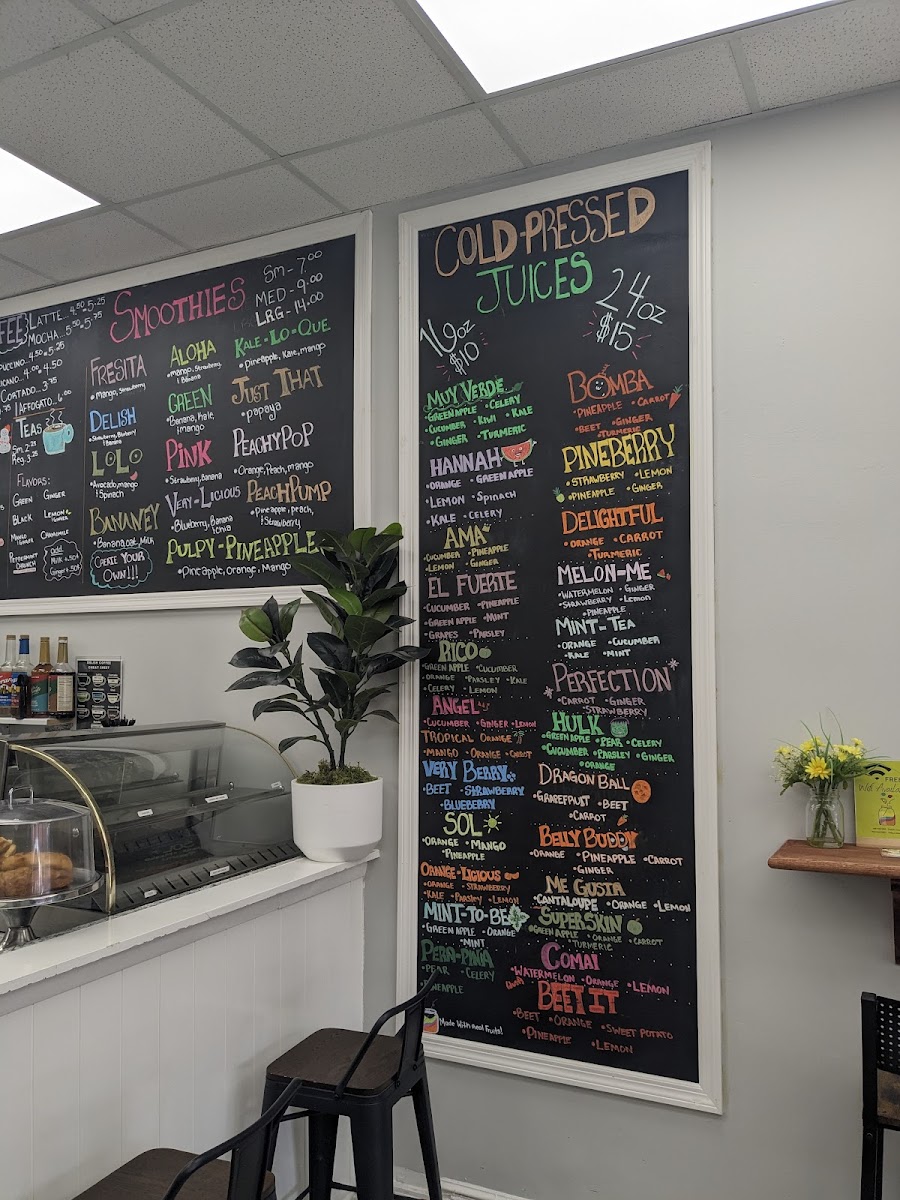 LATTE...4.50 5.25
MOCHA...5.50 5.75
4.50 5.25
4.00 4.50
CORTADO...3.75
AFFOGATO..6.00
TEAS
Sm. 2.25
Reg. 3.25
FLAVORS:
GREEN GINGER
BLACK LEMON
CAMOMILE
PEPPERMINT
SMOOTHIES
SM - 7.00
MED - 9.00
LRG - 14.00
FRESITA
•Mango, Strawberry
DELISH
•Strawberry, Blueberry
& Banana
LOLO
•Avocado, mango
& Spinach
BANANEY
•Banana, oat, Milk
CREATE YOUR
OWN!!!
ALOHA
•Mango, Strawberry,
& Banana
GREEN
•Banana, Kale,
& mango
PINK
•Strawberry, Banana
VERY-LICIOUS
•Blueberry, Banana
& chia
KALE-LO-QUE
•Pineapple, Kale, mango
JUST THAT
•papaya
PEACHYPOP
•Orange, Peach, mango
PEACHPUMP
•Pineapple, peach,
& Strawberry
PULPY-PINEAPPLE
•Pineapple, Orange, Mango
COLD-PRESSED
JUICES
16oz
$10
24oz
$15
MUY VERDE
•GREEN APPLE •CELERY
•CUCUMBER •KIWI •KALE
•GINGER •TURMERIC
HANNAH
•ORANGE •GREEN APPLE
•LEMON •Spinach
•KALE •CELERY
AMA
•CUCUMBER •PINEAPPLE
•LEMON •GINGER
EL FUERTE
•CUCUMBER •PINEAPPLE
•GREEN APPLE •MINT
•GRAPES •PARSLEY
RICO
•GREEN APPLE •CUCUMBER
•ORANGE •PARSLEY •KALE
•CELERY •LEMON
ANGEL
•CUCUMBER •GINGER •LEMON
TROPICAL ORANGE
•MANGO •ORANGE •CARROT
VERY BERRY
•BEET •STRAWBERRY
•BLUEBERRY
SOL
•ORANGE •MANGO
•PINEAPPLE
ORANGE-LICIOUS
•ORANGE •STRAWBERRY
•KALE •PARSLEY •LEMON
MINT-TO-BE
•GREEN APPLE •ORANGE
•MINT
PERA-PIÑA
•PEAR •CELERY
Made With Real Fruits!
BOMBA
•PINEAPPLE •CARROT
•BEET •GINGER
•TURMERIC
PINEBERRY
•STRAWBERRY •LEMON
•PINEAPPLE •GINGER
DELIGHTFUL
•ORANGE •CARROT
•TURMERIC
MELON-ME
•WATERMELON •GINGER
•STRAWBERRY •LEMON
•PINEAPPLE
MINT-TEA
•ORANGE •CUCUMBER
•KALE •MINT
PERFECTION
•CARROT •GINGER
•STRAWBERRY
HULK
•GREEN APPLE •PEAR •CELERY
•CUCUMBER •PARSLEY •GINGER
•ORANGE
DRAGON BALL
•GRAPEFRUIT •BEET
•CARROT
BELLY BUDDY
•ORANGE •PINEAPPLE •CARROT
•GINGER
ME GUSTA
•CANTALOUPE •ORANGE •LEMON
SUPERSKIN
•GREEN APPLE •ORANGE •CARROT
•TURMERIC
COMAI
•WATERMELON •ORANGE •LEMON
BEET IT
•BEET •ORANGE •SWEET POTATO
•PINEAPPLE •LEMON
FREE